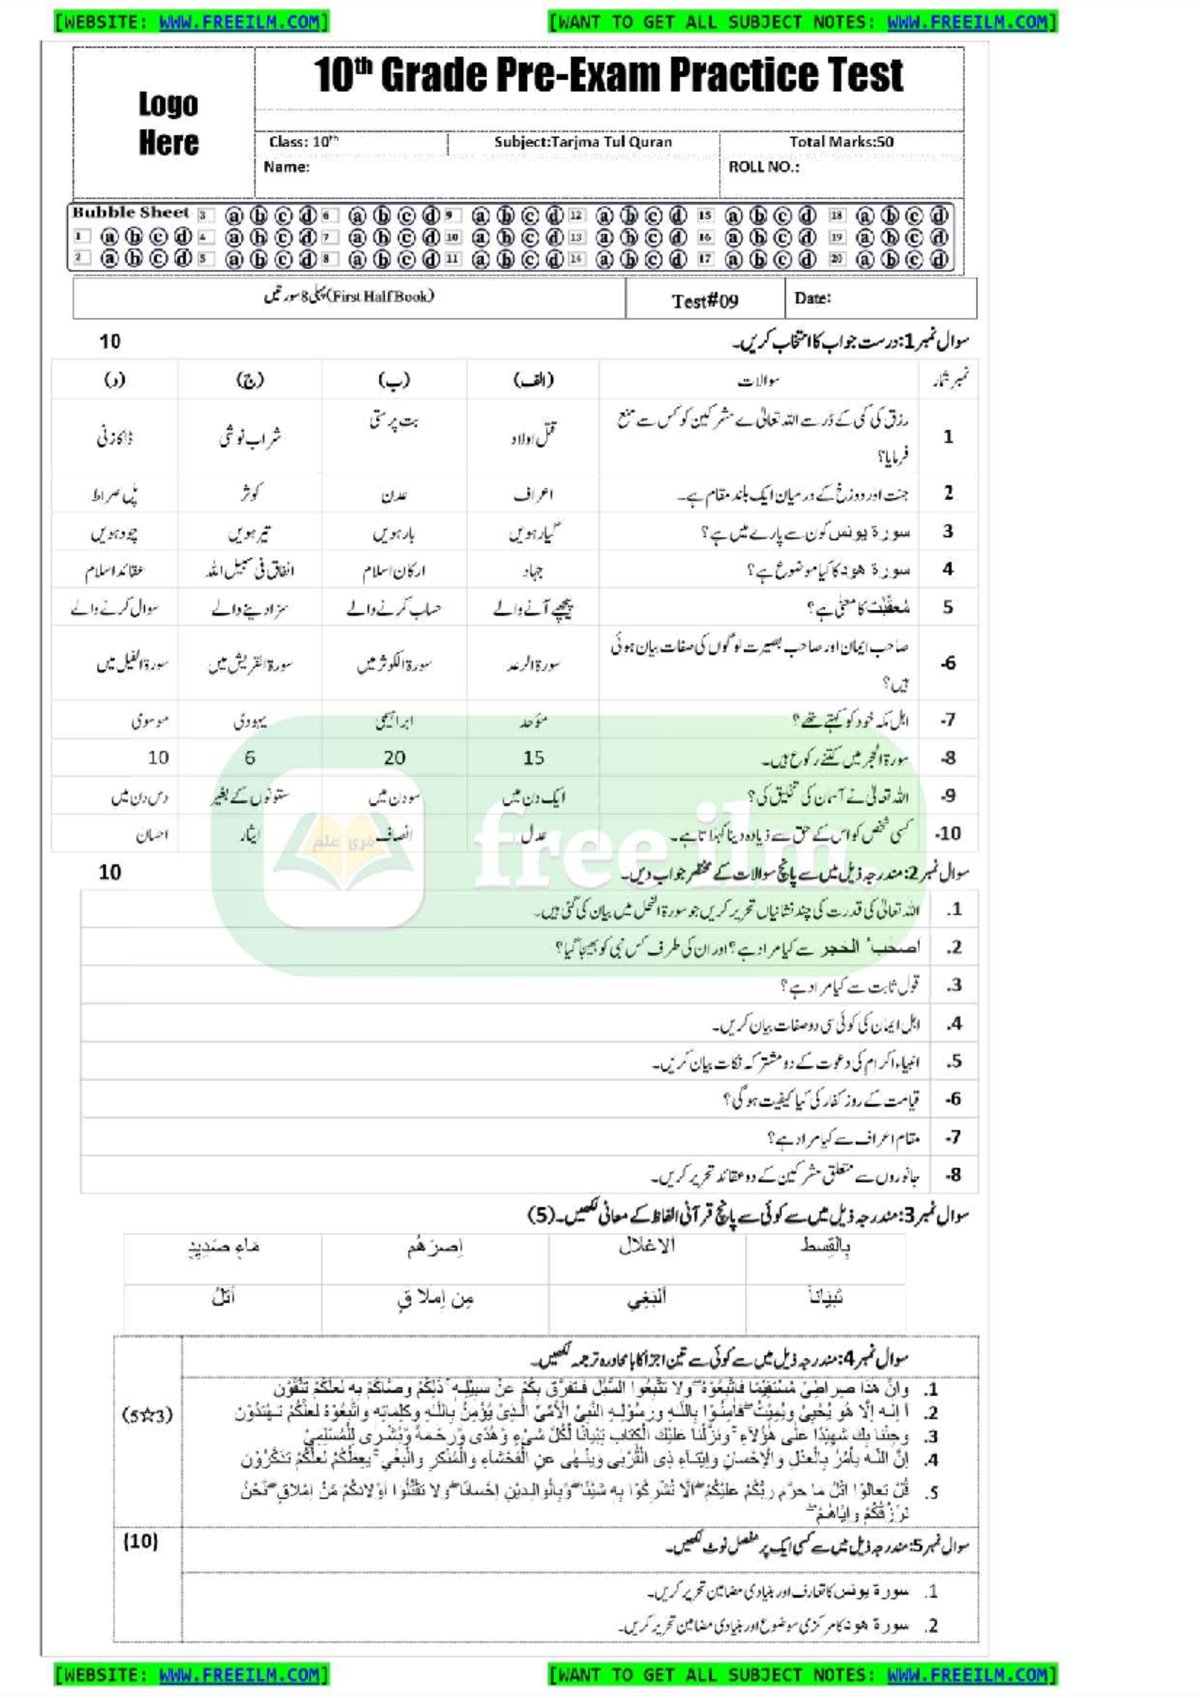 [WEBSITE: WWW.FREEILM.COM] [WANT TO GET ALL SUBJECT NOTES: WWW.FREEILM.COM]
Logo Here
10th Grade Pre-Exam Practice Test
Class: 10th Subject:Tarjma Tul Quran Total Marks:50
Name: ROLL NO.:
Bubble Sheet 3 a b c d 6 a b c d 9 a b c d 12 a b c d 15 a b c d 18 a b c d
1 a b c d 4 a b c d 7 a b c d 10 a b c d 13 a b c d 16 a b c d 19 a b c d
2 a b c d 5 a b c d 8 a b c d 11 a b c d 14 a b c d 17 a b c d 20 a b c d
پہلی 8 سورتیں (First Half Book) Test#09 Date:
سوال نمبر 1: درست جواب کا انتخاب کریں۔ 10
نمبر شمار سوالات (الف) (ب) (ج) (د)
1 رزق کی کمی کے ڈر سے اللہ تعالیٰ نے مشرکین کو کس سے منع فرمایا؟ قتل اولاد بت پرستی شراب نوشی ڈاکا زنی
2 جنت اور دوزخ کے درمیان ایک بلند مقام ہے۔ اعراف عدن کوثر پل صراط
3 سورۃ یونس کون سے پارے میں ہے؟ گیارہویں بارہویں تیرہویں چودہویں
4 سورۃ ھود کا کیا موضوع ہے؟ جہاد ارکان اسلام انفاق فی سبیل اللہ عقائد اسلام
5 مُعقّبٰت کا معنیٰ ہے؟ پیچھے آنے والے حساب کرنے والے سزا دینے والے سوال کرنے والے
6- صاحب ایمان اور صاحب بصیرت لوگوں کی صفات بیان ہوئی ہیں؟ سورۃ الرعد سورۃ الکوثر میں سورۃ القریش میں سورۃ الفیل میں
7- اہل مکہ خود کو کہتے تھے؟ مؤحد ابراہیمی یہودی موسوی
8- سورۃ الحجر میں کتنے رکوع ہیں۔ 15 20 6 10
9- اللہ تعالیٰ نے آسمان کی تخلیق کی؟ ایک دن میں سو دن میں ستونوں کے بغیر دس دن میں
10- کسی شخص کو اس کے حق سے زیادہ دینا کہلاتا ہے۔ عدل انصاف ایثار احسان
freeilm.
فری علم
سوال نمبر 2: مندرجہ ذیل میں سے پانچ سوالات کے مختصر جواب دیں۔ 10
1. اللہ تعالیٰ کی قدرت کی چند نشانیاں تحریر کریں جو سورۃ النحل میں بیان کی گئی ہیں۔
2. اصحٰب الحجر سے کیا مراد ہے؟ اور ان کی طرف کس نبی کو بھیجا گیا؟
3. قول ثابت سے کیا مراد ہے؟
4. اہل ایمان کی کوئی سی دو صفات بیان کریں۔
5. انبیاء اکرام کی دعوت کے دو مشترکہ نکات بیان کریں۔
6- قیامت کے روز کفار کی کیا کیفیت ہوگی؟
7- مقام اعراف سے کیا مراد ہے؟
8- جانوروں سے متعلق مشرکین کے دو عقائد تحریر کریں۔
سوال نمبر 3: مندرجہ ذیل میں سے کوئی سے پانچ قرآنی الفاظ کے معانی لکھیں۔ (5)
بِالْقِسط الاغلال اِصرَھُم مَاءٍ صَدِیدٍ
تَبیَاناً اَلبَغِي مِن اِملَاقٍ اَتلُ
سوال نمبر 4: مندرجہ ذیل میں سے کوئی سے تین اجزا کا بامحاورہ ترجمہ لکھیں۔
(5☆3)
1. وانّ ھٰذا صِراطِیْ مُسْتَقِیْمًا فَاتَّبِعُوْهُ ۚ ولا تَتَّبِعُوا السُّبُلَ فَتَفَرَّقَ بِكُمْ عَنْ سَبِیْلِهٖ ؕ ذٰلِكُمْ وصّاكُمْ بِهٖ لَعَلَّكُمْ تَتَّقُوْن
2. لَا اِلٰهَ اِلَّا هُوَ یُحْیٖ ویُمِیْتُ ۪ فَاٰمِنُوْا بِاللّٰهِ ورسُوْلِهِ النَّبِیِّ الْاُمِّیِّ الَّذِیْ یُؤْمِنُ بِاللّٰهِ وكَلِمٰتِهٖ واتَّبِعُوْهُ لَعَلَّكُمْ تَهْتَدُوْن
3. وجِئْنا بِكَ شَهِیْدًا عَلٰی هٰۤؤُلَآءِ ؕ ونَزَّلْنا عَلَیْكَ الْكِتٰبَ تِبْیَانًا لِّكُلِّ شَیْءٍ وَّهُدًی وَّرَحْمَةً وَّبُشْرٰی لِلْمُسْلِمِیْنَ
4. اِنَّ اللّٰهَ یاْمُرُ بِالْعَدْلِ والْاِحْسانِ واِیْتَآءِ ذِی الْقُرْبٰی ویَنْهٰی عَنِ الْفَحْشَآءِ والْمُنْكَرِ والْبَغْیِ ۚ یَعِظُكُمْ لَعَلَّكُمْ تَذَكَّرُوْنَ
5. قُلْ تَعالَوْا اَتْلُ ما حرَّمَ ربُّكُمْ عَلَیْكُمْ اَلَّا تُشْرِكُوْا بِهٖ شَیْـًٔا وَّبِالْوالِدیْنِ اِحْسانًا ۚ ولا تَقْتُلُوْۤا اَوْلادَكُمْ مِّنْ اِمْلاقٍ ؕ نَحْنُ
نَرْزُقُكُمْ واِیَّاهُمْ ۚ
سوال نمبر 5: مندرجہ ذیل میں سے کسی ایک پر مفصل نوٹ لکھیں۔ (10)
1. سورۃ یونس کا تعارف اور بنیادی مضامین تحریر کریں۔
2. سورۃ ھود کا مرکزی موضوع اور بنیادی مضامین تحریر کریں۔
[WEBSITE: WWW.FREEILM.COM] [WANT TO GET ALL SUBJECT NOTES: WWW.FREEILM.COM]